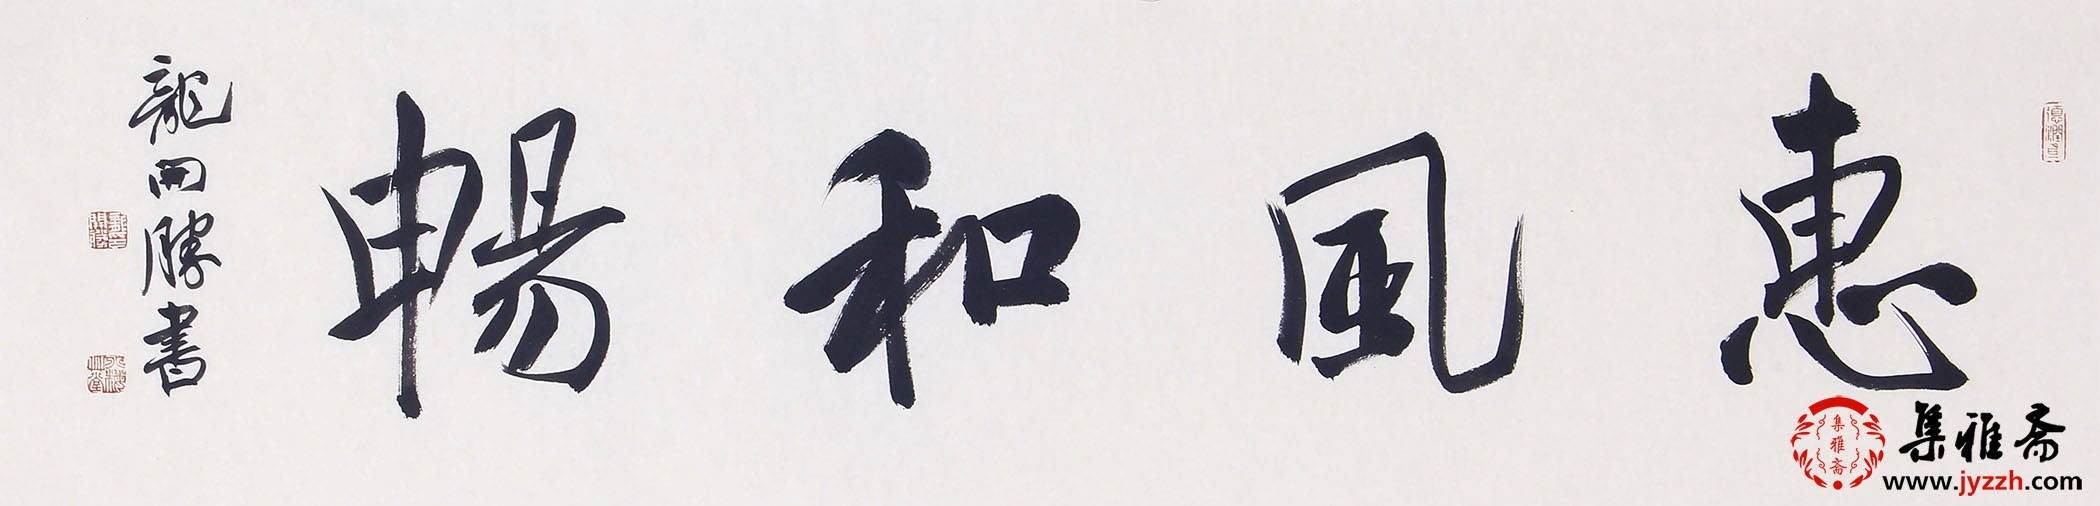 惠風和暢
龍開勝書
集雅斋
集雅斋
www.jyzzh.com